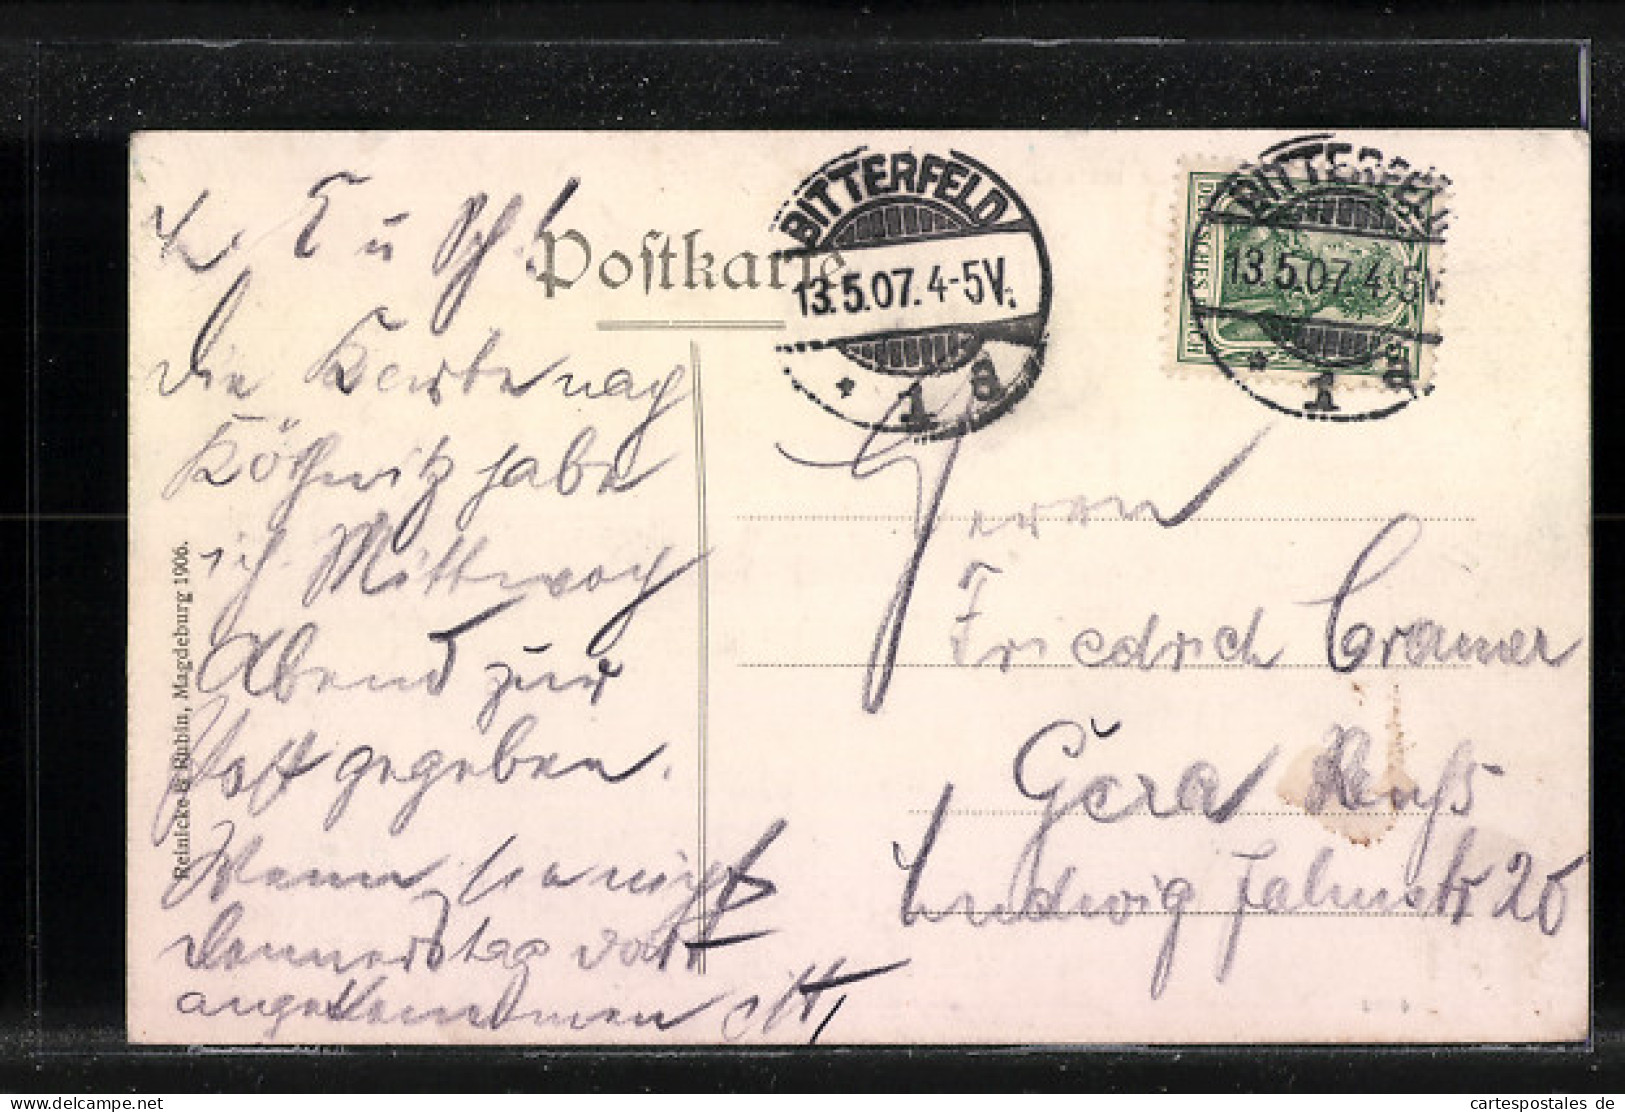 L. E u Sch!
die Karte nach
Köthwitz habe
ich Mittwoch
Abend zur
Post gegeben.
Wenn sie nicht
Donnerstag dort
angekommen ist,
Reinicke & Rubin, Magdeburg 1906.
Postkarte
BITTERFELD
13.5.07. 4-5V.
* 1 a
DEUTSCHES REICH
BITTERFELD
13.5.07. 4-5V.
* 1 a
Herrn
Friedrich Cramer
Gera Reuß
Ludwig Jahnstr 20
cartespostales de